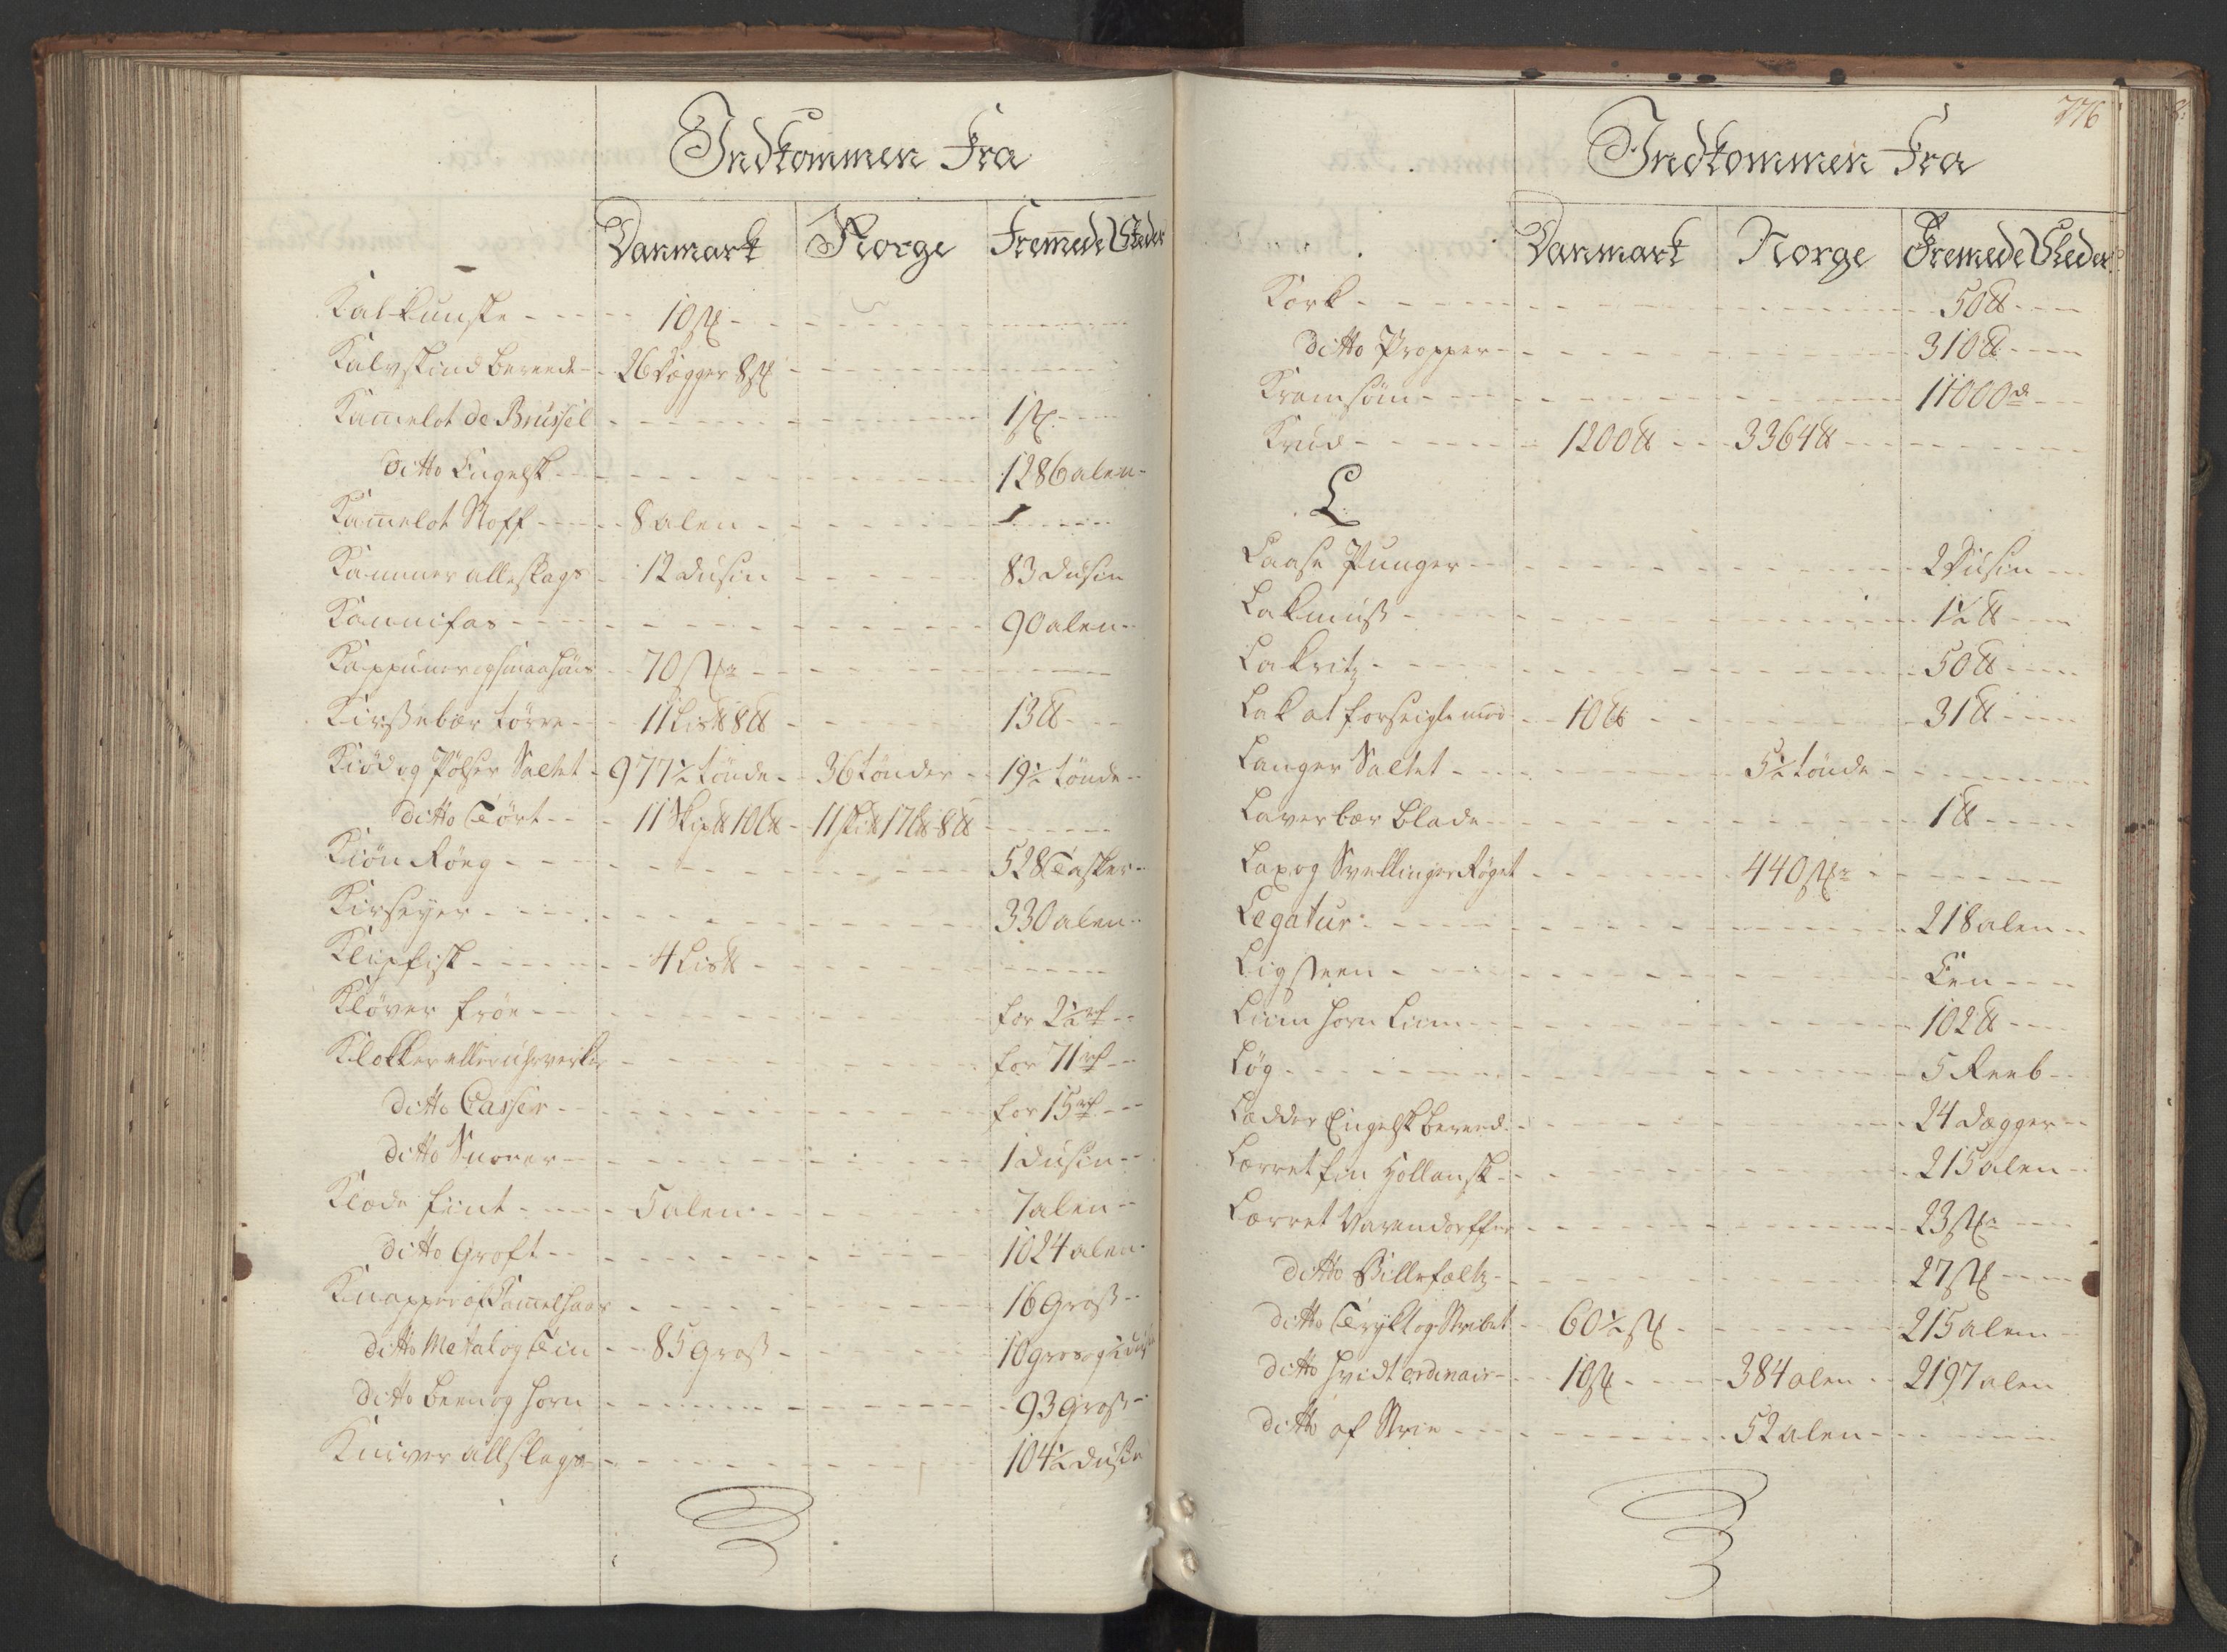 Indkommen Fra
Danmark Norge Fremede Steder
Kalkunske 10 st
Kalvskind bereede 26 Degger 8 st
Kamelot de Brüssel 1 st
ditto Engelsk 1286 alen
Kamelot Stoff 8 alen
Kammer alleslags 12 dusin 83 dusin
Kannifas 90 alen
Kappuner og smaa höns 70 st
Kirsebær törre 11 Lis℔ 8 ℔ 13 ℔
Kiöd og Pölser Saltet 977½ tönde 36 tönder 19½ tönde
ditto Tört 11 Skip℔ 10 L℔ 11 ski℔ 17 L℔ 8 ℔
Kiön Röeg 528 Tasker
Kirseyer 330 alen
Klipfisk 4 Lis℔
Klöver fröe for 2½ rd
Klokker eller uhrverker for 71 rd
ditto Casser for 15 rd
ditto Snorer 1 dusin
Klæde fiint 5 alen 7 alen
ditto Groft 1024 alen
Knapper af Kamelhaar 16 Gross
ditto Metal og Tin 85 Gross 10 gros og
ditto been og horn 93 gross
Kniver allslags 104½ dusin
776
Indkommen Fra
Danmark Norge Fremede Steder
Kork 50 ℔
ditto Propper 310 ℔
Kramsöm 11000 d
Krud 1200 ℔ 3364 ℔
L
Laase Punger 2 Dusin
Lakmus 1½ ℔
Lakritz 50 ℔
Lak at forseigle med 10 ℔ 31 ℔
Langer Saltet 5½ tönde
Laverbær Blade 1 ℔
Lax og Svellinger Röget 440 st
Legatur 218 alen
Ligsteen Een
Liim horn Liim 102 ℔
Lög 5 Reeb
Lædder Engelsk bereed 24 dægger
Lærret fin Hollansk 215 alen
Lærret Varendorffer 23 st
ditto Billefæltz 27 st
ditto Trykt og Stribet 60½ st 215 alen
ditto hvidt ordinair 10 st 384 alen 2197 alen
ditto af Strie 52 alen